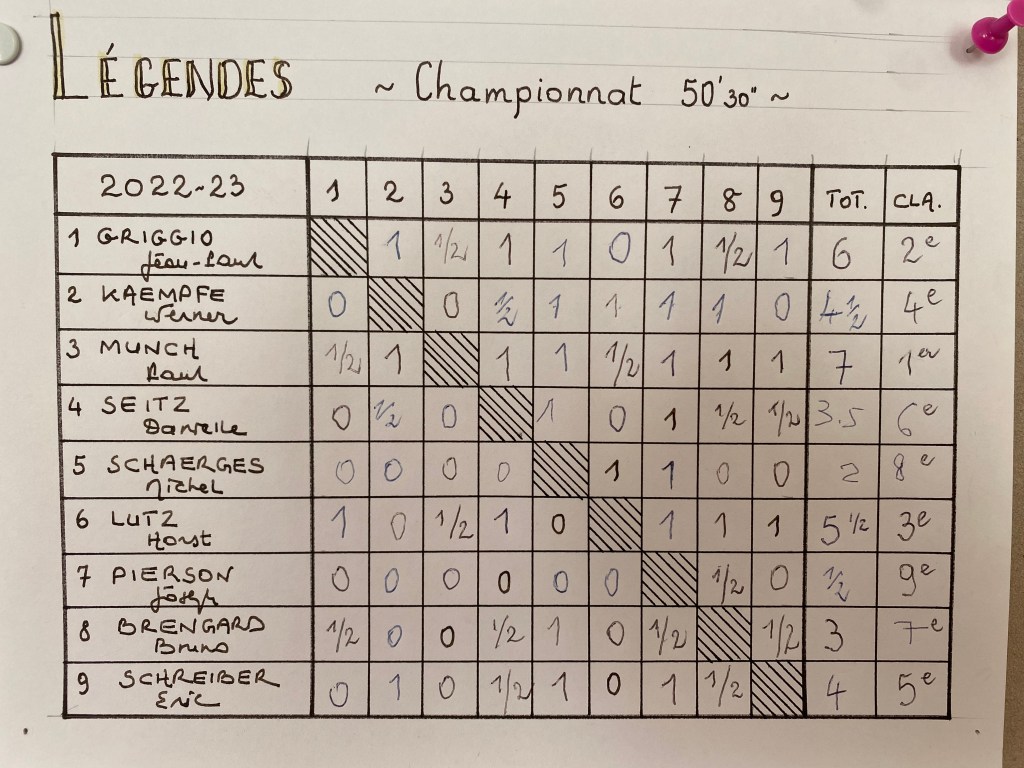 LÉGENDES ~ Championnat 50'30" ~
2022-23 1 2 3 4 5 6 7 8 9 TOT. CLA.
1 GRIGGIO 1 1/2 1 1 0 1 1/2 1 6 2e
Jean-Paul
2 KAEMPFE 0 0 1/2 1 1 1 1 0 4 1/2 4e
Werner
3 MUNCH 1/2 1 1 1 1/2 1 1 1 7 1er
Paul
4 SEITZ 0 1/2 0 1 0 1 1/2 1/2 3.5 6e
Danielle
5 SCHAERGES 0 0 0 0 1 1 0 0 2 8e
Michel
6 LUTZ 1 0 1/2 1 0 1 1 1 5 1/2 3e
Horst
7 PIERSON 0 0 0 0 0 0 1/2 0 1/2 9e
Joseph
8 BRENGARD 1/2 0 0 1/2 1 0 1/2 1/2 3 7e
Bruno
9 SCHREIBER 0 1 0 1/2 1 0 1 1/2 4 5e
Eric